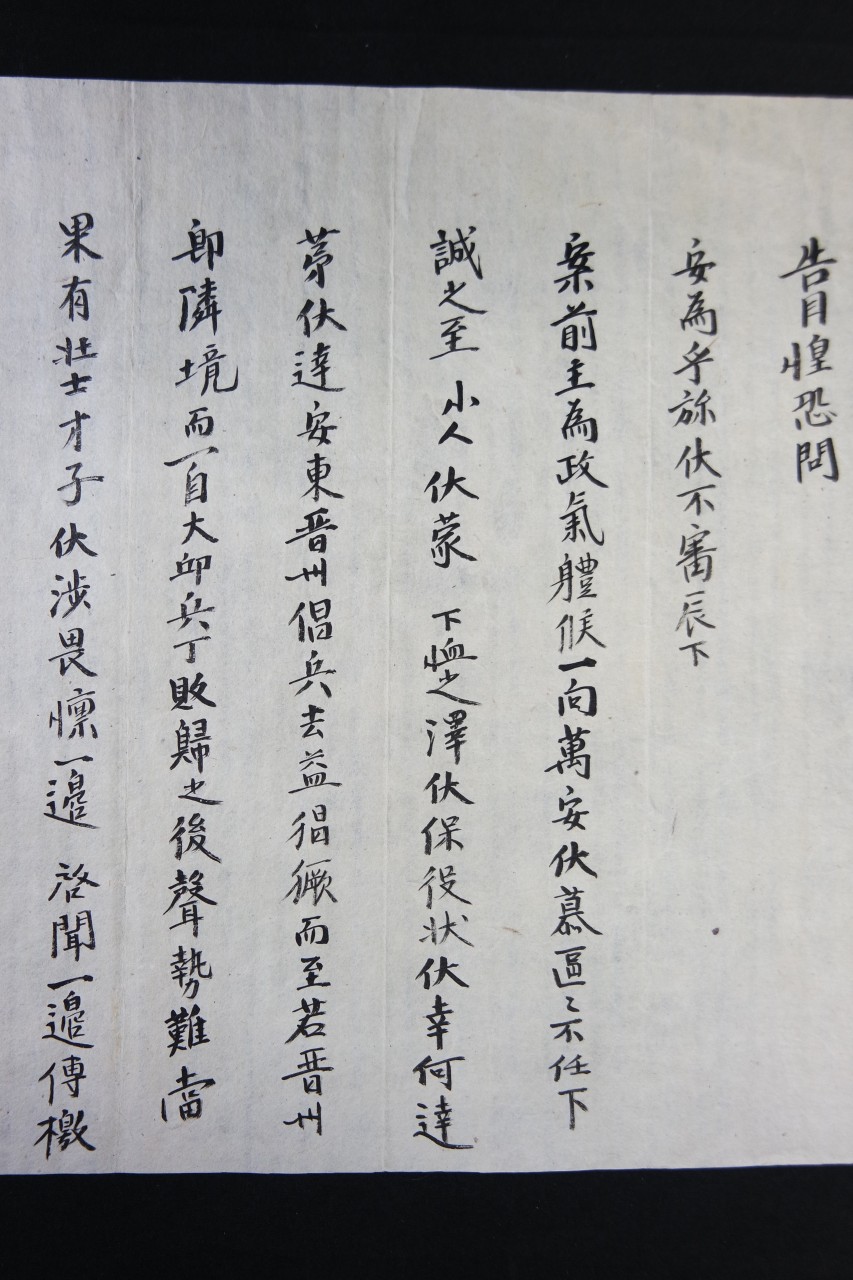 告目惶恐問
安為乎旀伏不審辰下
案前主為政氣體候一向萬安伏慕區〻不任下
誠之至 小人伏蒙 下恤之澤伏保役狀伏幸何達
苐伏達安東晋州倡兵去益猖獗而至若晋州
即隣境而一自大邱兵丁敗歸之後聲勢難當
果有壯士才子伏涉畏懍一邉 啓聞一邉傳檄